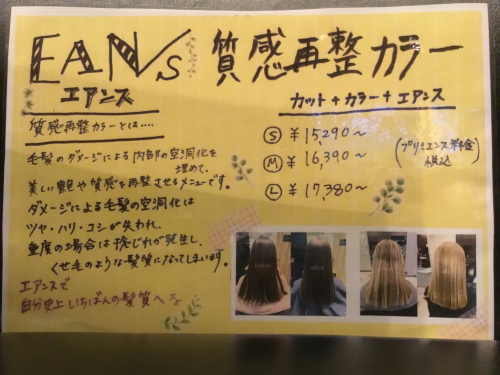 EANs 質感再整カラー
エアンス
カット+カラー+エアンス
質感再整カラーとは....
毛髪のダメージによる内部の空洞化を
埋めて、
美しい艶や質感を再整させるメニューです。
ダメージによる毛髪の空洞化は
ツヤ・ハリ・コシが失われ、
重度の場合は捻じれが発生し、
くせ毛のような髪質になってしまいます。
エアンスで
自分史上いちばんの髪質へ
Ⓢ ¥15,290〜
Ⓜ ¥16,390〜
Ⓛ ¥17,380〜
(プリミエンス料金)
税込
before
after